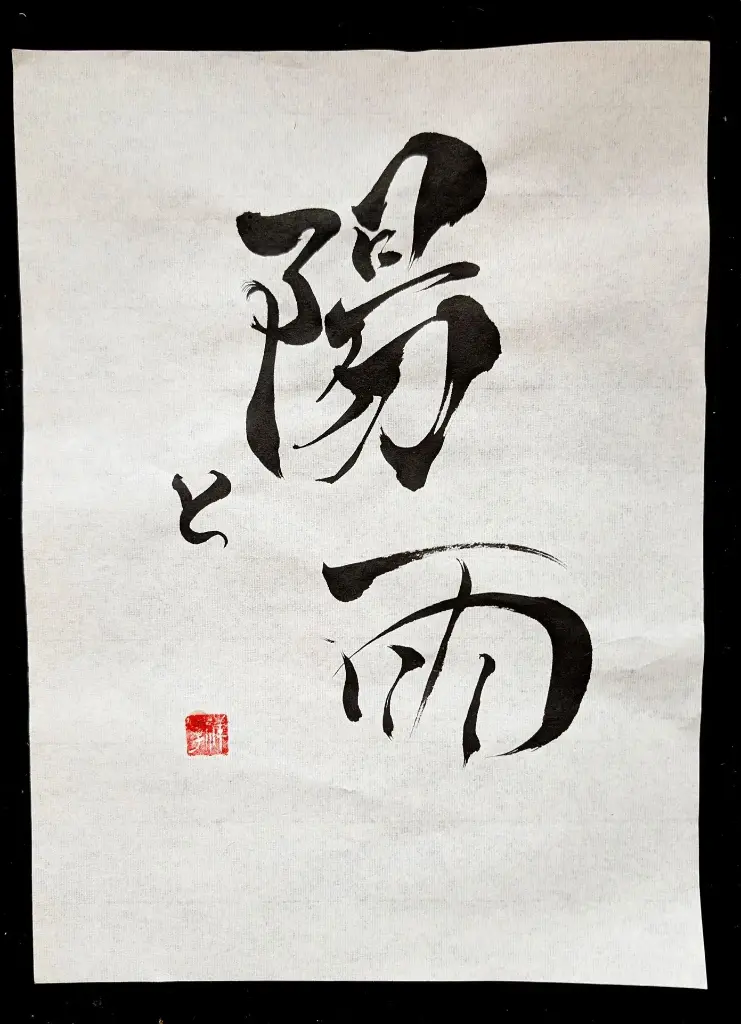 陽
と
雨